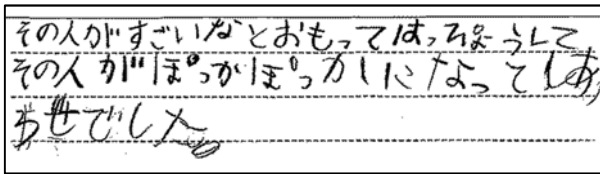 その人がすごいなとおもってはっぴょうして
その人がぽっかぽっかしになってしあ
わせでした